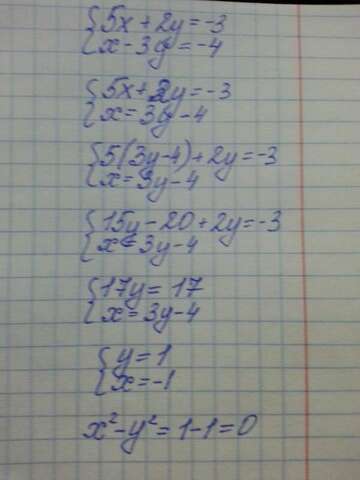 {5x + 2y = -3
{x - 3y = -4
{5x + 2y = -3
{x = 3y - 4
{5(3y-4) + 2y = -3
{x = 3y - 4
{15y - 20 + 2y = -3
{x = 3y - 4
{17y = 17
{x = 3y - 4
{y = 1
{x = -1
x² - y² = 1 - 1 = 0